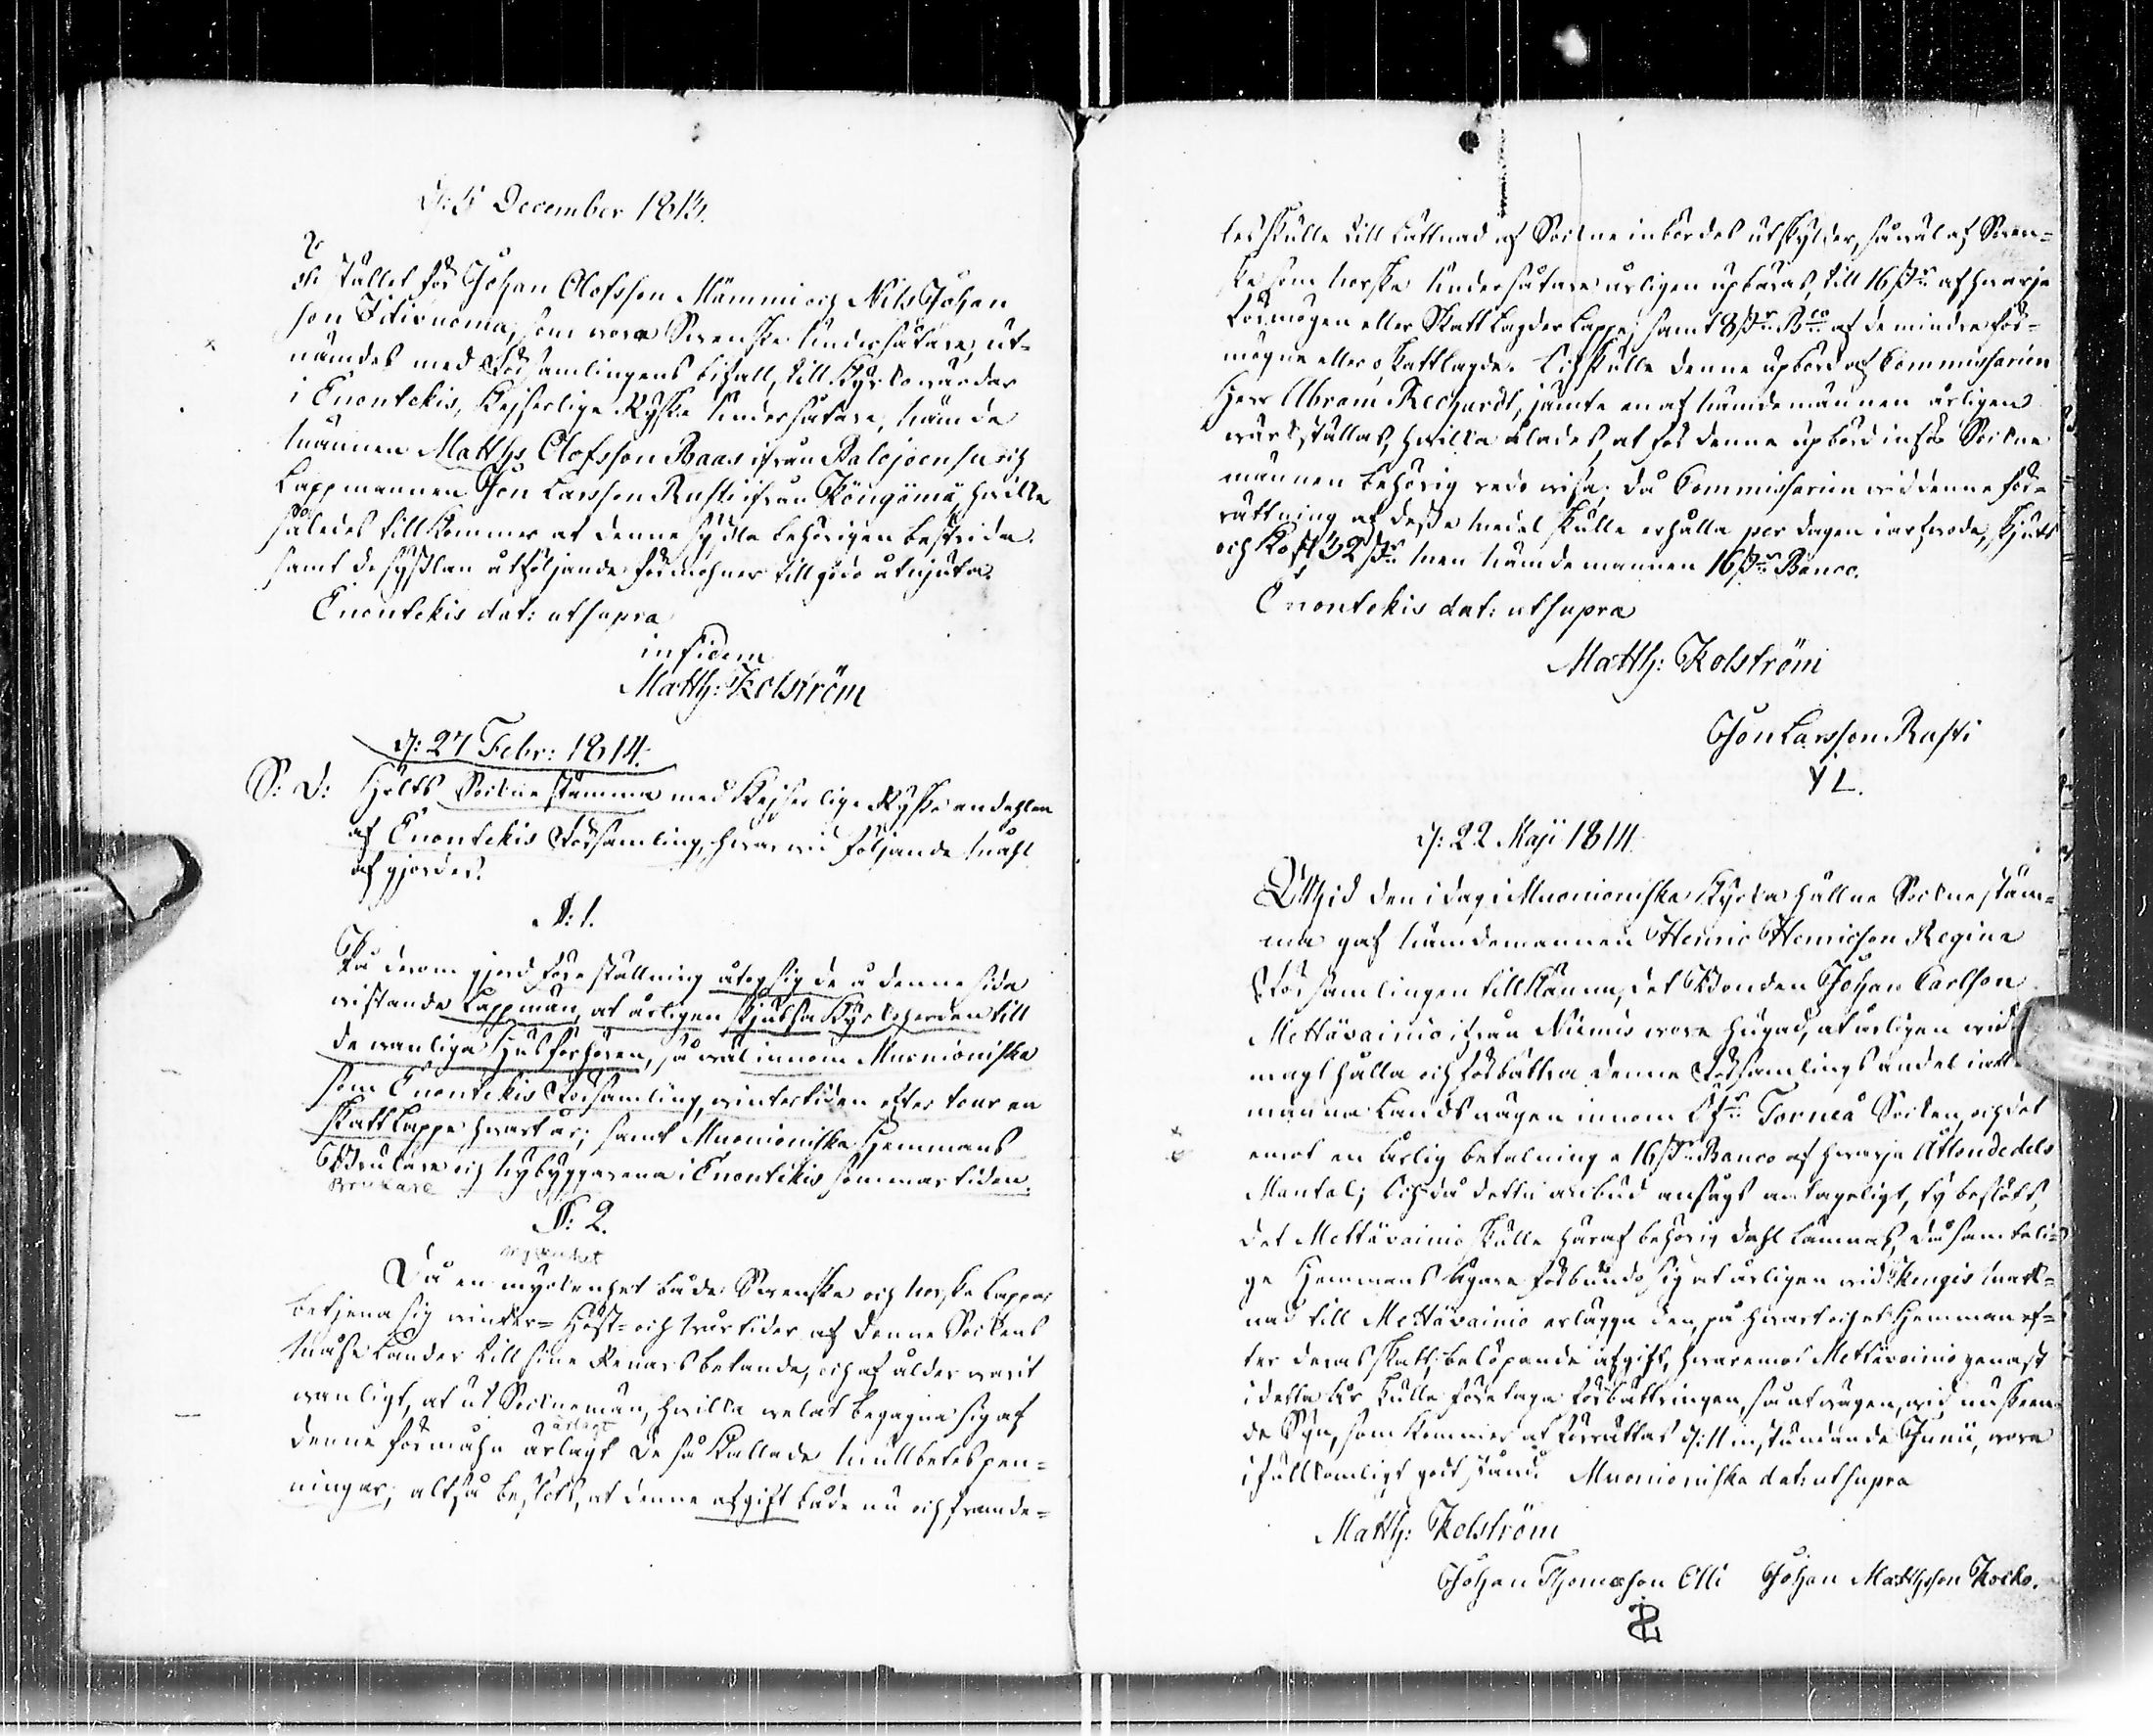 d: 5 December 1813.
I stället för Johan Olofsson Mämmi och Nils Johan
son Fitivuoma, som wore Swenske Undersåtare, ut-
nämdes med Församlingens bifall, till Kyrkowärdar
i Enontekis, Kejserlige Ryske Undersåtare, Nämde
männen Matths Olofsson Raas ifrån Palojoensu och
Lappmannen Jon Larsson Rasti ifrån Köngömä, hwilka
således tillkommer at denne sysla behörigen bestrida
samt de sysslan åtföljande förmohner till godo åtnjuta.
Enontekis dat: ut supra
in fidem
Matth: Kolström
d: 27 Febr: 1814.
S: D: Hölts Sockne stämma med Kejserlige Ryske andehlen
af Enontekis Församling, hwarwid följande mähl
afgjordes.
N: 1.
På derom gjord föreställning åtog sig de å denne sida
wistande Lappmän, at årligen skjutsa Kyrkoherden till
de wanliga Husförhören, så wäl innom Muonioniska
som Enontekis Församling, wintertiden efter tour en
Skattlappe hwart år; samt Muonioniska Hemmans
Brukare och Nybyggarena i Enontekis sommartiden.
Brukare
N: 2.
myckenhet
Då en myckenhet både Swenske och Norske Lappar
betjena sig winter- Höst- och wårtider af denne Sockens
Lander till sine Renars betande, och af ålder warit
wanligt, at ut Socknemän, hwilka welat begagna sig af
erlagt
denne förmåhn ärlagt de så kallade Mullbetespen-
ningar; altså beslöts, at denne afgift både nu och framde-
les skulle till lättnad af Sockne inbördes utskylder, såwäl af Swen-
ske som Norske Undersåtare årligen upbäras, till 16 s:r af hwarje
förmögen eller Skattlagder Lappe; samt 8 s:r B:co af de mindre för-
mögne eller oskattlagde. Och skulle denne upbörd af Commissarien
Herr Abram Rechardt, jämte en af Nämdemännen årligen
wärkställas, hwilka ålades, at för denne upbörd inför Sockne
männen behörig redowisa; då Commissarien wid denne för-
rättning af desse medel skulle erhålla per dagen i arfwode, skjuts
och kost 32 s:r men Nämdemannen 16 s:r Banco.
Enontekis dat: ut supra
Matth: Kolström
Jon Larsson Rasti
Y L.
d: 22 Maji 1814.
Wid den i dag i Muonioniska Kyrka hållne Sockne stäm-
ma gaf Nämdemannen Henric Henricson Regina
Församlingen tillkänna, det Bonden Johan Carlson
Mettävainio ifrån Niemis wore hugad, at årligen wid
magt hålla och förbättra denne Församlings andel i all-
männa Landswägen innom Öf:r Torneå Socken, och det
emot en årlig betalning a 16 s:r Banco af hwarje Åttondedels
Mantal; Och då detta anbud ansågs antageligt, ty beslöts,
det Mettävainio skulle häraf behörig dehl lämnas, då samteli-
ge Hemmans Ägare förbundo sig at årligen wid Kengis mark-
nad till Mettävainio erlägga den, på hwart och et Hemman ef-
ter deras skatt, belöpande afgift, hwaremot Mettävainio genast
i detta år skulle företaga förbättringen, så at wägen, wid nu skeen-
de Syn, som kommer at förrättas sist instundande Junii, wore
i fullkomligt godt stånd. Muonioniska dat: ut supra
Matth: Kolström
Johan Thomasson Elli Johan Matthsson Kocko.